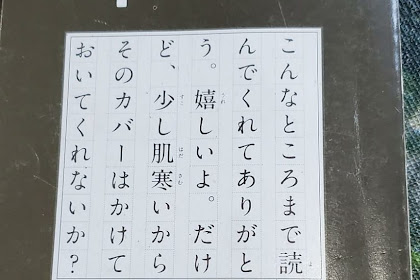 こんなところまで読
んでくれてありがと
う。嬉しいよ。だけ
ど、少し肌寒いから
そのカバーはかけて
おいてくれないか?